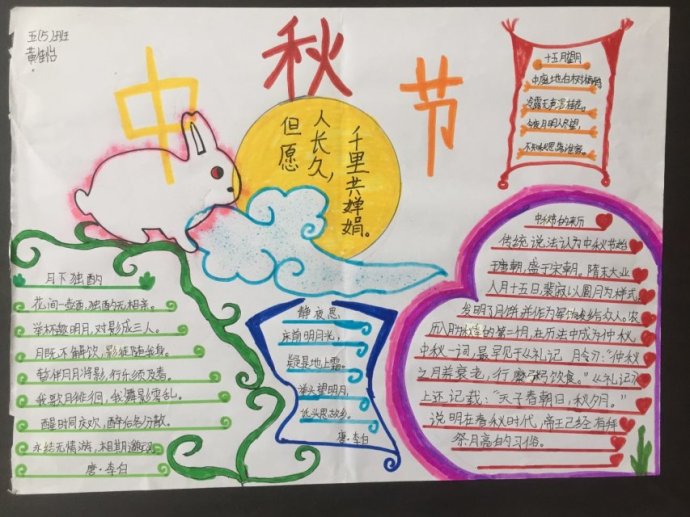 五(5)班
黄佳怡
中秋节
但愿
人长久，
千里共婵娟。
十五月望月
中庭地白树栖鸦，
冷露无声湿桂花。
今夜月明人尽望，
不知秋思落谁家。
月下独酌
花间一壶酒，独酌无相亲。
举杯邀明月，对影成三人。
月既不解饮，影徒随我身。
暂伴月将影，行乐须及春。
我歌月徘徊，我舞影零乱。
醒时同交欢，醉后各分散。
永结无情游，相期邈云汉。
唐·李白
静夜思
床前明月光，
疑是地上霜。
举头望明月，
低头思故乡。
唐·李白
中秋节的来历
传统说法认为中秋节始
于唐朝，盛于宋朝。隋末大业
八月十五日，裴寂以圆月为样式，
发明了月饼并作为军饷
历八月
中秋一词，最早见于《礼记 月令》："仲秋
之月养衰老，行糜粥饮食。"《礼记》
上还记载："天子春朝日，秋夕月。"
说明在春秋时代，帝王已经有拜
祭月亮的习俗。